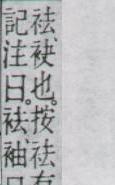 袪袂也按袪有
記注曰袪袖口